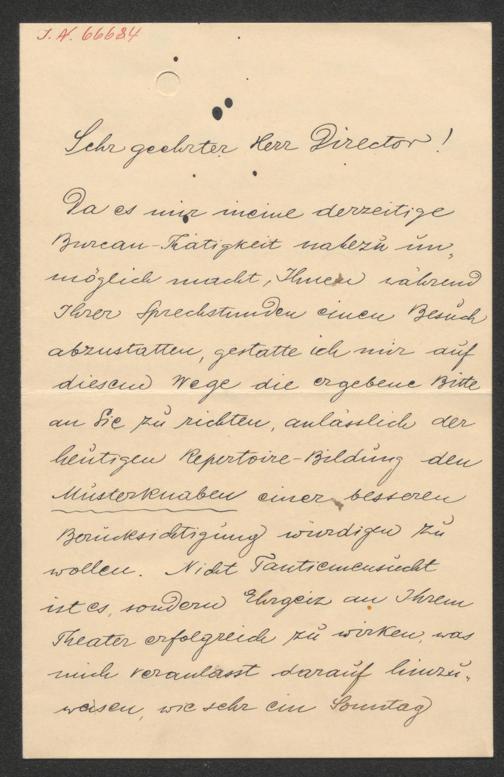 J.N. 66684
Sehr geehrter Herr Director!
Da es mir meine derzeitige
Bureau-Tätigkeit nahezu un,
möglich macht, Ihnen während
Ihrer Sprechstunden einen Besuch
abzustatten, gestatte ich mir auf
diesem Wege die ergebene Bitte
an Sie zu richten, anlässlich der
heutigen Repertoire-Bildung den
Musterknaben einer besseren
Berücksichtigung würdigen zu
wollen. Nicht Tantiemensucht
ist es, sondern Ehrgeiz an Ihrem
Theater erfolgreich zu wirken, was
mich veranlasst darauf hinzu,
weisen, wie sehr ein Sonntag